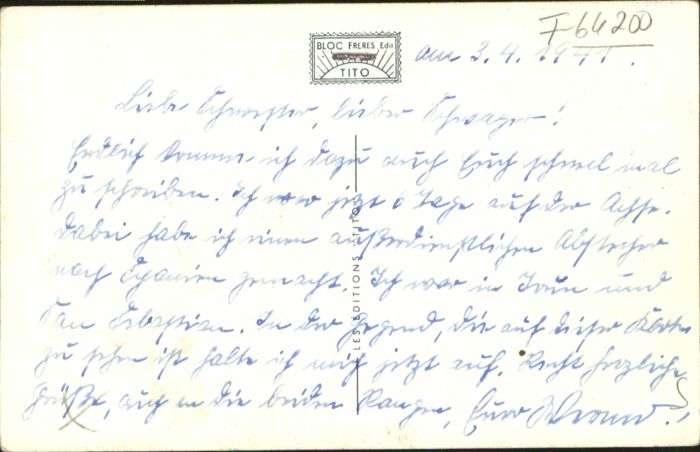 F-64200
BLOC FRERES Edit
TITO
am 3.4.1941.
Liebe Schwester, lieber Schwager!
Endlich komme ich dazu auch Euch schnell mal
zu schreiben. Ich war jetzt 6 Tage auf der Achse.
Dabei habe ich einen außerdienstlichen Abstecher
nach Spanien gemacht. Ich war in Irun und
San Sebastian. In der Gegend, die auf dieser Karte
zu sehen ist halte ich mich jetzt auf. Recht herzliche
Grüße, auch an die beiden Rangen, Euer Werner.
LES EDITIONS "TITO"